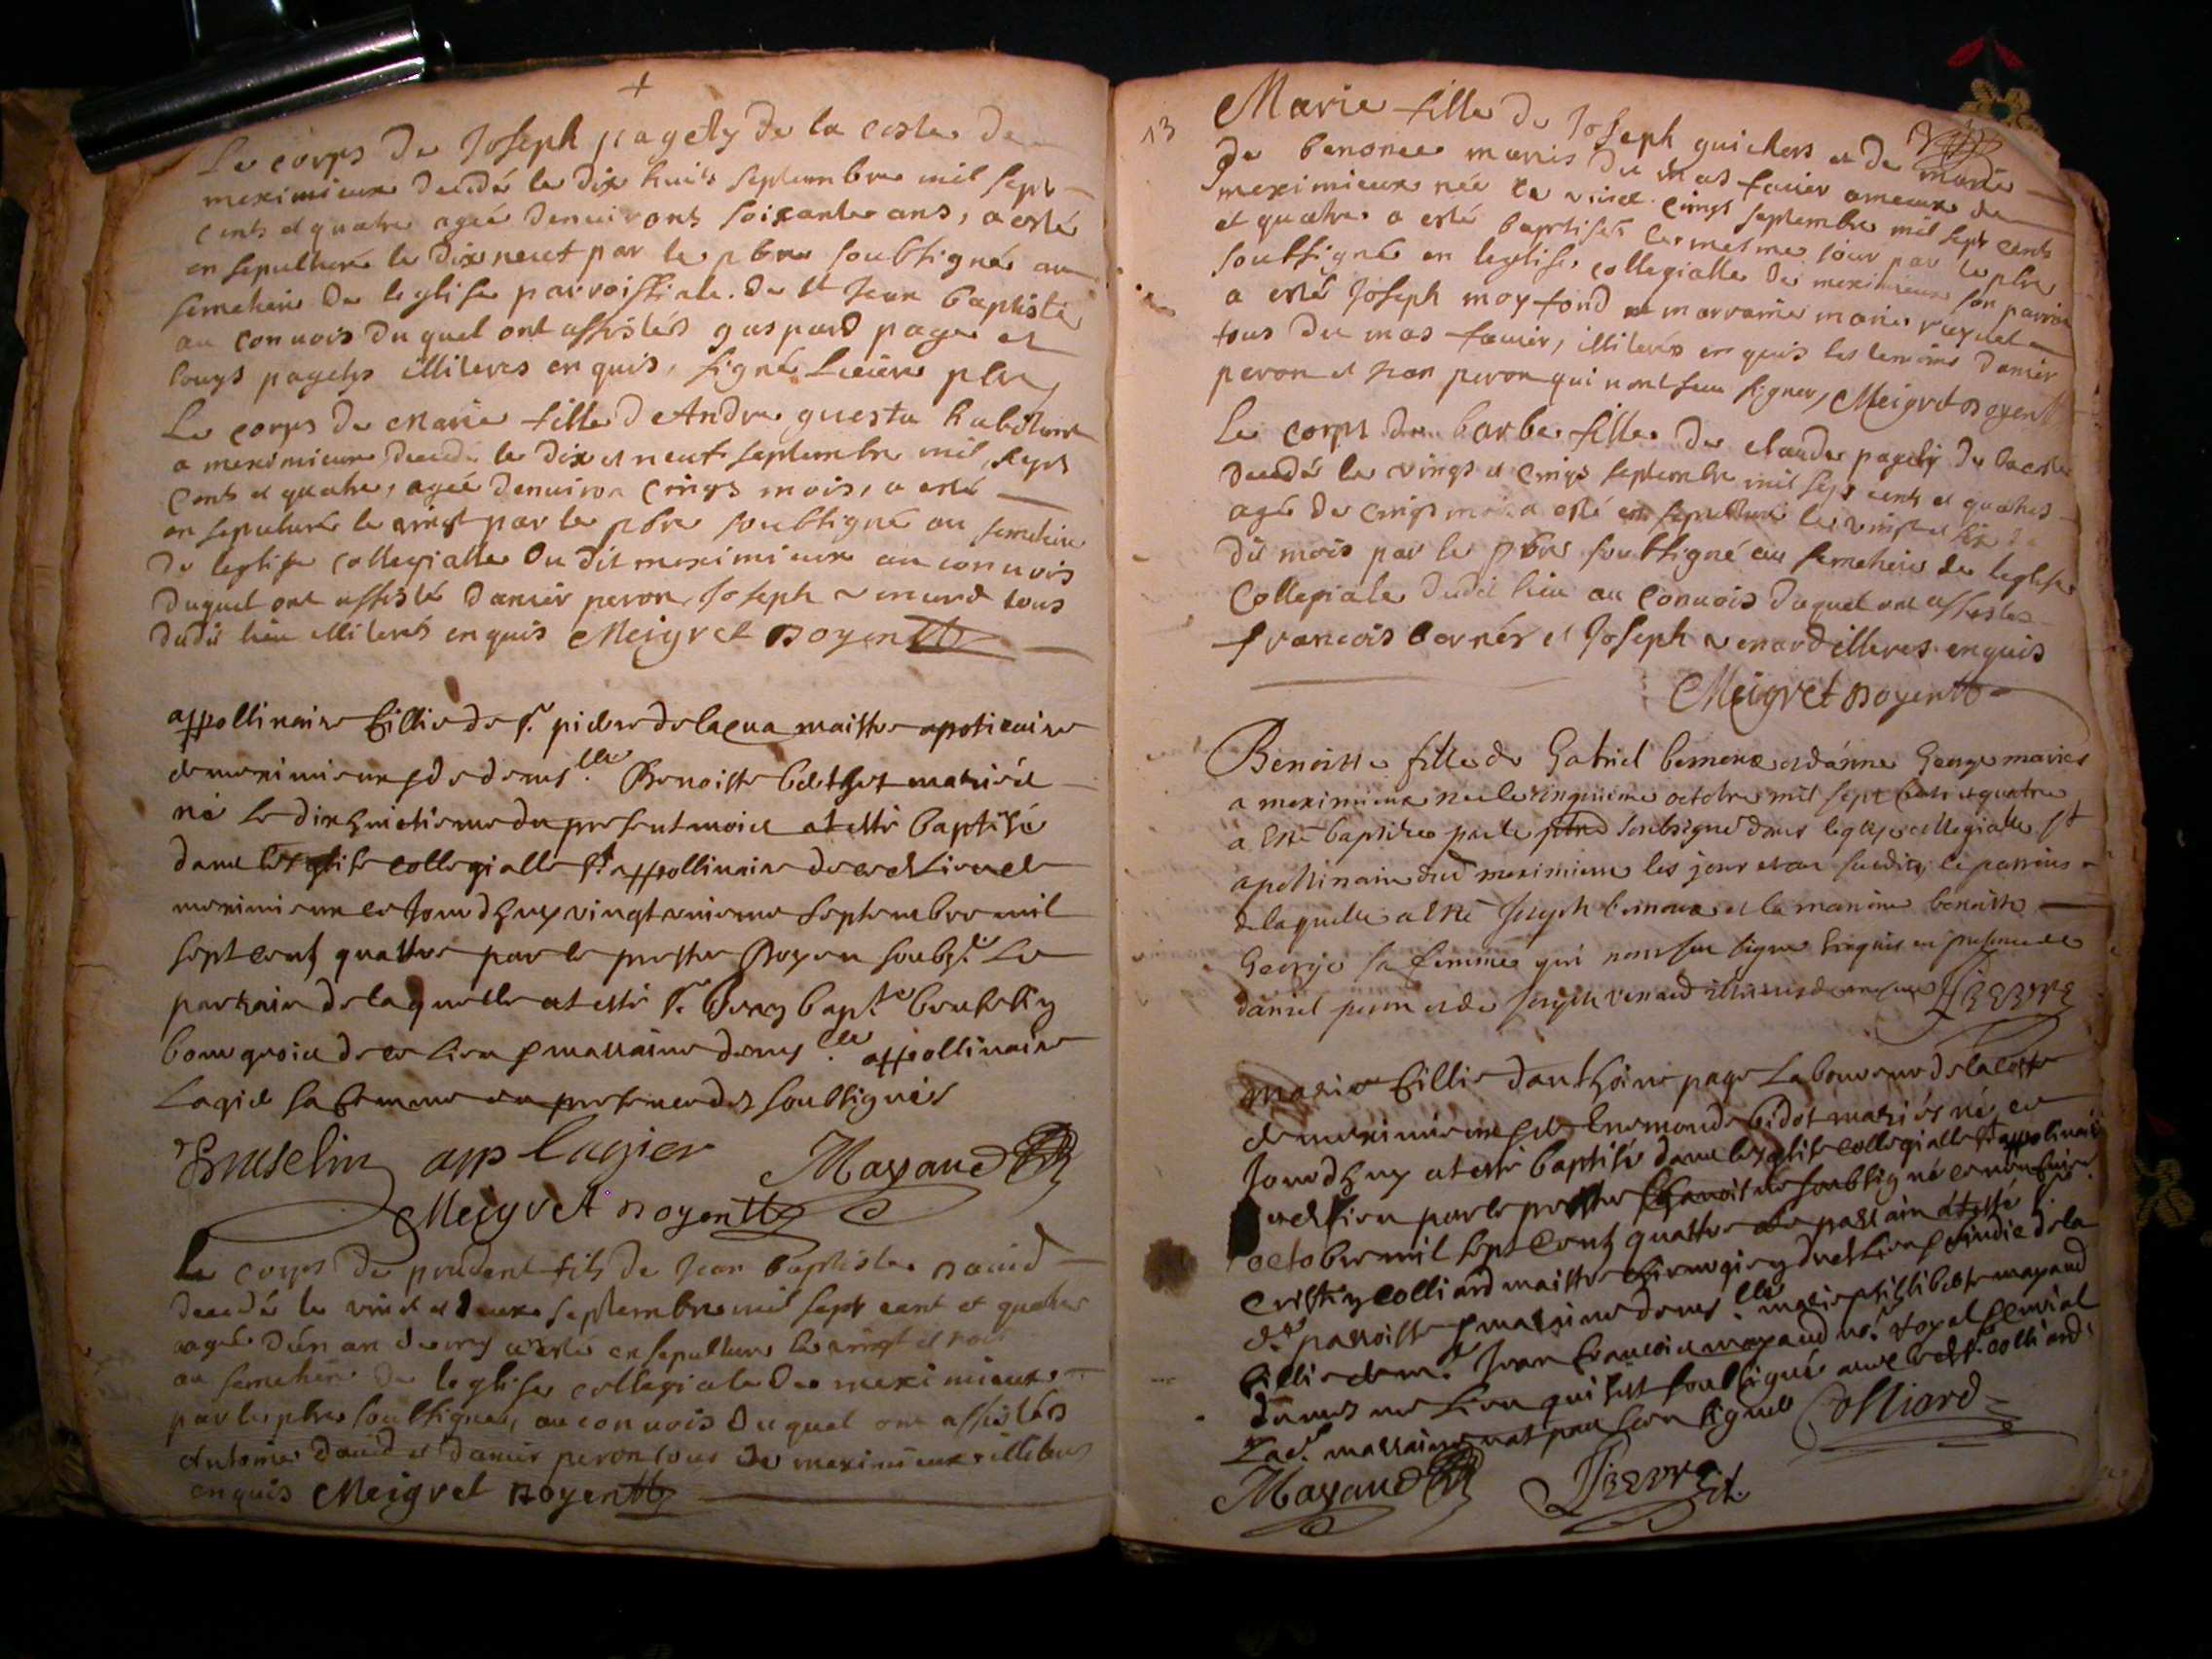 Le corps de Joseph pagety de la coste de
meximieux decedé le dix huit septembre mil sept
cents et quatre ageé denuiront soixante ans, a esté
en sepulturé le dixneuf par le pbre soubsigné au
semetiere de leglise parroissiale de st Jean baptiste
au conuois du quel ont assistés gaspard page et
louys pagetys illiterés enquis, signé pbre
Le corps de Marie fille dAndre questa habitant
a meximieux decedé le dix et neuf septembre mil sept
cents et quatre, ageé denuiron cinqs mois, a esté
en sepulturé le vingt par le pbre soubsigné au semetiere
de leglise collegialle du dit meximieux au conuois
duquel ont assisté daniér peron, Joseph venard tous
dudit lieu illiterés enquis Meigret doyen
appollinaire fillie de sr. pierre delacua maistre apoticaire
de meximieux & de demslle. Benoiste mariés
né le dix huictiesme du present mois at esté baptisé
dans lesglise collegialle st. appollinaire de cedt lieu de
meximieux ce jourdhuy vingt uniesme septembre mil
sept cents quattre par le prestre Doyen soubsé. Le
parrain de laquelle at esté sr. Jean bapte bruselin
bourgeois de ce lieu & marraine demslle. appollinaire
Lagie sa femme en presence des soubsignés
Bruselin app lagier Mayaud
Meigret doyen
Le corps de prudent fils de Jean baptiste dauid
decedé le vint et deuxe septembre mil sept cent et quatre
aagé d'un an a esté en sepulturé le vingt et
au semetiere de leglise collegiale de meximieux
par le pbre soubsigné, au conuois duquel ont assistés
Antoine dauid et daniér peron tous de meximieux illiterés
enquis Meigret doyen
13
Marie fille de Joseph guichers et de marie
de benonee mariés du mas fauier ameux de
meximieux née le vint cinqs septembre mil sept cents
et quatre a esté baptisée le mesme jour par le pbre
soubsigné en leglise collegialle de meximieux son parrain
a esté Joseph moyfond et marraine marie
tous du mas fauier, illiterés enquis les temoins daniér
peron et Jean peron qui n'ont sceu signer, Meigret doyen
Le corps de barbe fille de claude pagety de lacoste
decedé le vingt et cinqs septembre mil sept cents et quatre
ageé de cinqs mois a esté en sepulturé le vingt et six
du mois par le pbre soubsigné au semetiere de leglise
Collegiale dudit lieu au conuois duquel ont assistés
francois bornés et Joseph venard illiterés enquis
Meigret doyen
Benoiste fille de Gabriel bernoux et danne George mariés
a meximieux née le cinquieme octobre mil sept cents et quatre
a esté baptisée par le pbre soubsigné dans leglise collegialle st
apollinaire dud meximieux les jour et an susdits, le parrain
de laquelle a esté Joseph bernoux et la marraine benoiste
George sa femme qui nont sceu signer enquis en presence de
daniel peron et de Joseph venard illiterés
Marie fillie danthoine page Laboureur de la coste
de meximieux & de Enemonde bidot mariés né ce
jourdhuy at esté baptisé dans lesglise collegialle st appolinaire
dudt lieu par le prestre soubsigné ce
octobre mil sept cents quattre le parrain at esté sr.
cristhy colliard maistre chirurgien dudt lieu & sindic de la
dte parroisse & marraine demslle. marie philliberte mayaud
fillie de mr. Jean francois mayaud nore. royal & curial
dans ce lieu qui sest soubsigné auec ledt sr. colliard.
Lade. marraine nat pas sceu signer Colliard
Mayaud